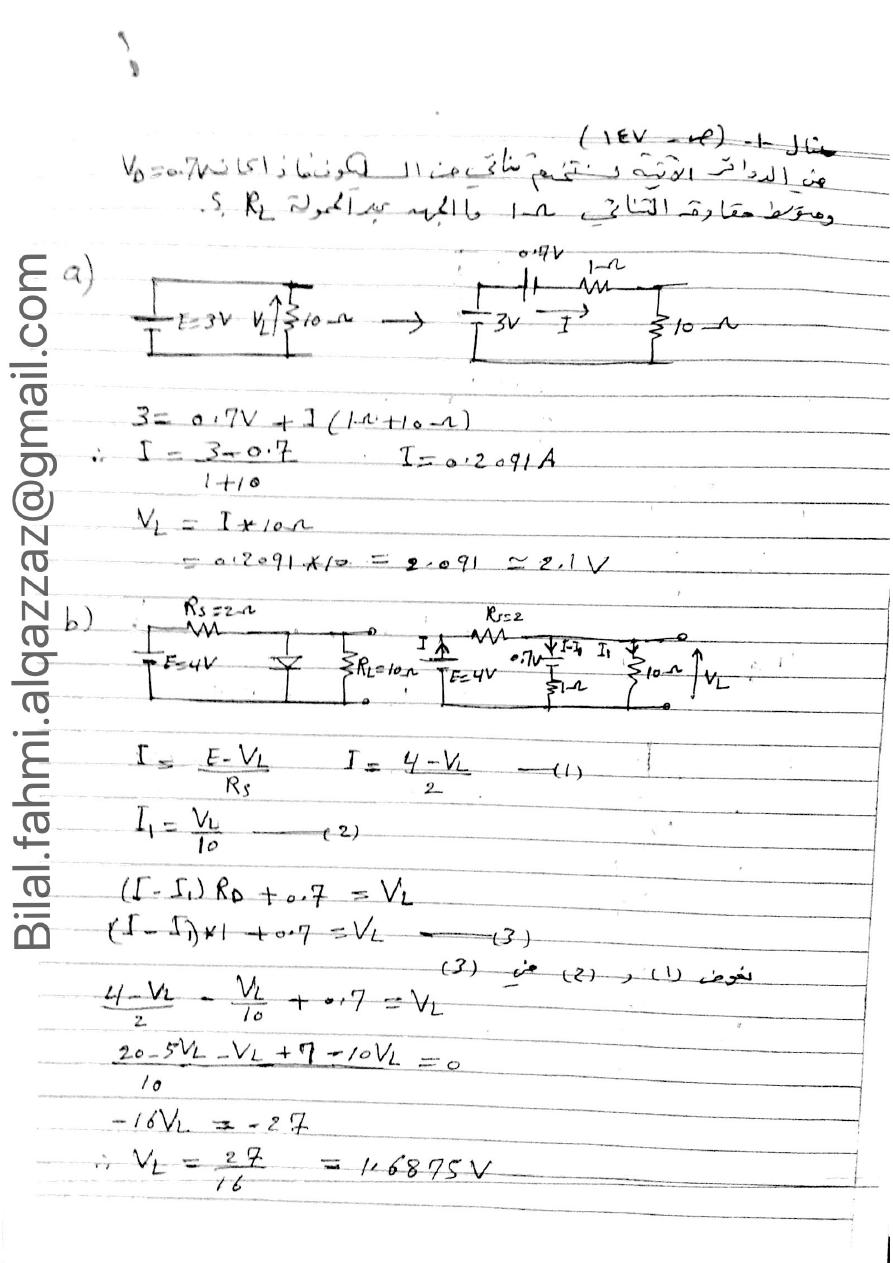 مثال -١- (ص - ١٤٧)
في الدوائر الآتية نستخدم ثنائي من السليكون فاذا كانت VD=0.7V
ومتوسط مقاومة الثنائي 1Ω ما الجهد عبر الحمولة RL ؟.
a)
E=3V VL 10Ω → 0.7V 1Ω 3V I 10Ω
3= 0.7V + I (1Ω+10Ω)
∴ I = 3-0.7 / 1+10 I=0.2091A
VL = I*10Ω
= 0.2091*10 = 2.091 ≃ 2.1V
b)
RS=2Ω E=4V RL=10Ω I RS=2 E=4V 0.7V I-I1 1Ω I1 10Ω VL
I = E-VL / RS I = 4-VL / 2 —(1)
I1 = VL / 10 —(2)
(I-I1) RD + 0.7 = VL
(I-I1)*1 + 0.7 = VL —(3)
نعوض (1) و (2) في (3)
4-VL / 2 - VL / 10 + 0.7 = VL
20-5VL-VL+7-10VL / 10 = 0
-16VL = -27
∴ VL = 27 / 16 = 1.6875V
Bilal.fahmi.alqazzaz@gmail.com